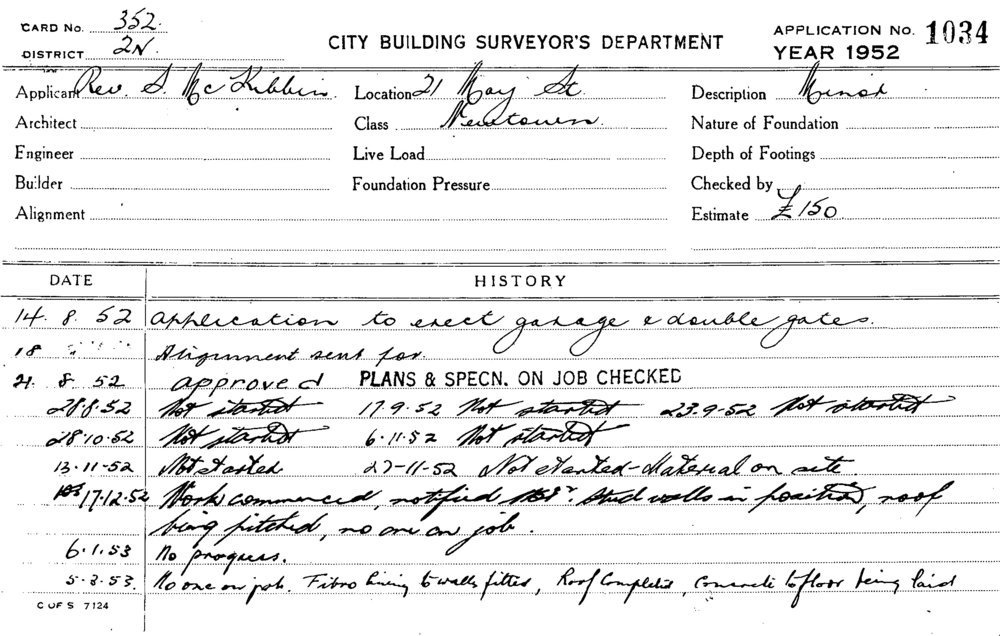 CARD No. 352.
DISTRICT 2N.
CITY BUILDING SURVEYOR'S DEPARTMENT
APPLICATION No. 1034
YEAR 1952
Applicant Rev. S. McKibbin. Location 21 May St. Description Minor
Architect Class Newtown. Nature of Foundation
Engineer Live Load Depth of Footings
Builder Foundation Pressure Checked by
Alignment Estimate £150
DATE HISTORY
14. 8. 52 Application to erect garage & double gates.
18 Alignment sent for.
21. 8. 52 approved PLANS & SPECN. ON JOB CHECKED
28.8.52 Not started 17.9.52 Not started 23.9.52 Not started
28.10.52 Not started 6.11.52 Not started
13.11.52 Not started 27-11-52 Not started - Material on site.
17.12.52 Work commenced, notified Stud walls in position, roof
being pitched, no one on job.
6.1.53 No progress.
5.3.53. No one on job. Fibro lining to walls fitted, Roof Completed, Concrete to floor being laid
C OF S 7124